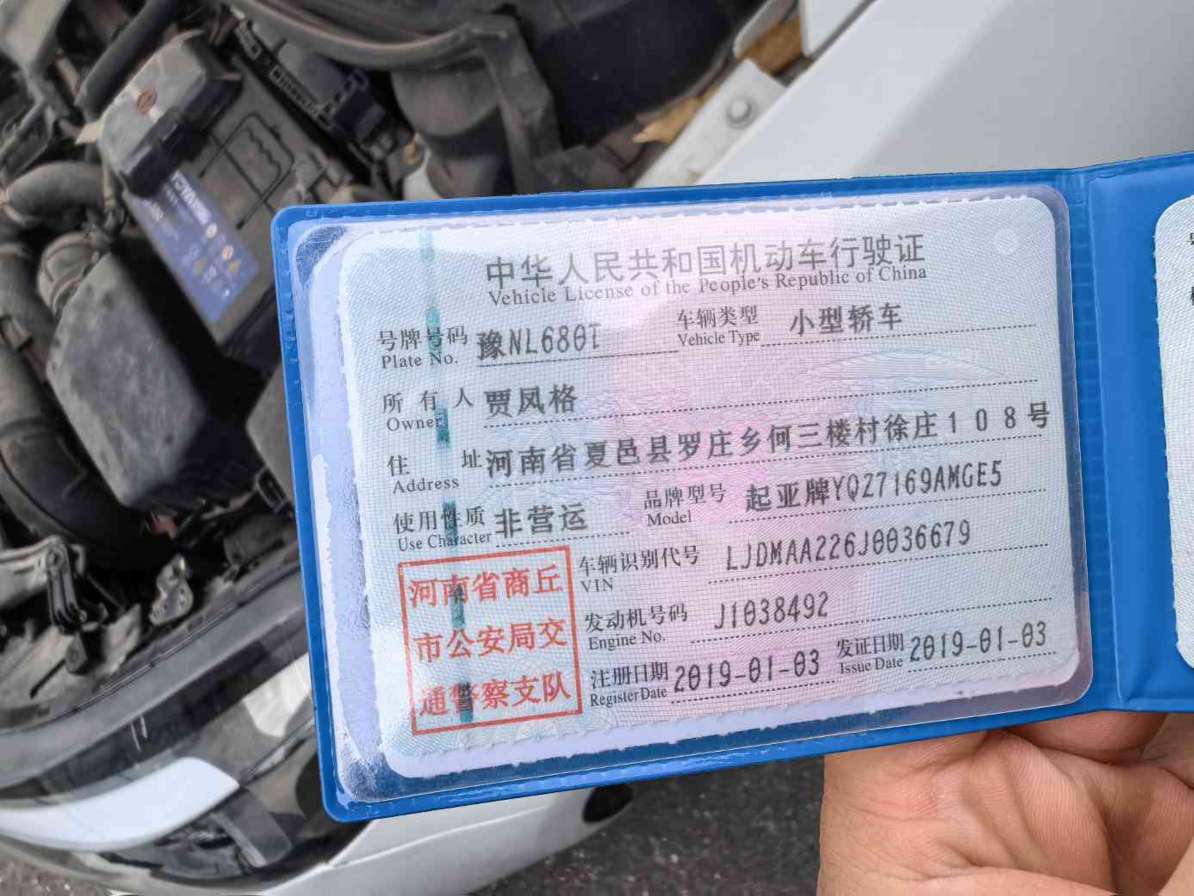 中华人民共和国机动车行驶证
Vehicle License of the People's Republic of China
号牌号码 豫NL680T 车辆类型 小型轿车
Plate No. Vehicle Type
所有人 贾凤格
Owner
住址 河南省夏邑县罗庄乡何三楼村徐庄108号
Address
使用性质 非营运 品牌型号 起亚牌YQZ7169AMGE5
Use Character Model
车辆识别代号 LJDMAA226J0036679
VIN
发动机号码 J1038492
Engine No.
注册日期 2019-01-03 发证日期 2019-01-03
Register Date Issue Date
河南省商丘
市公安局交
通警察支队